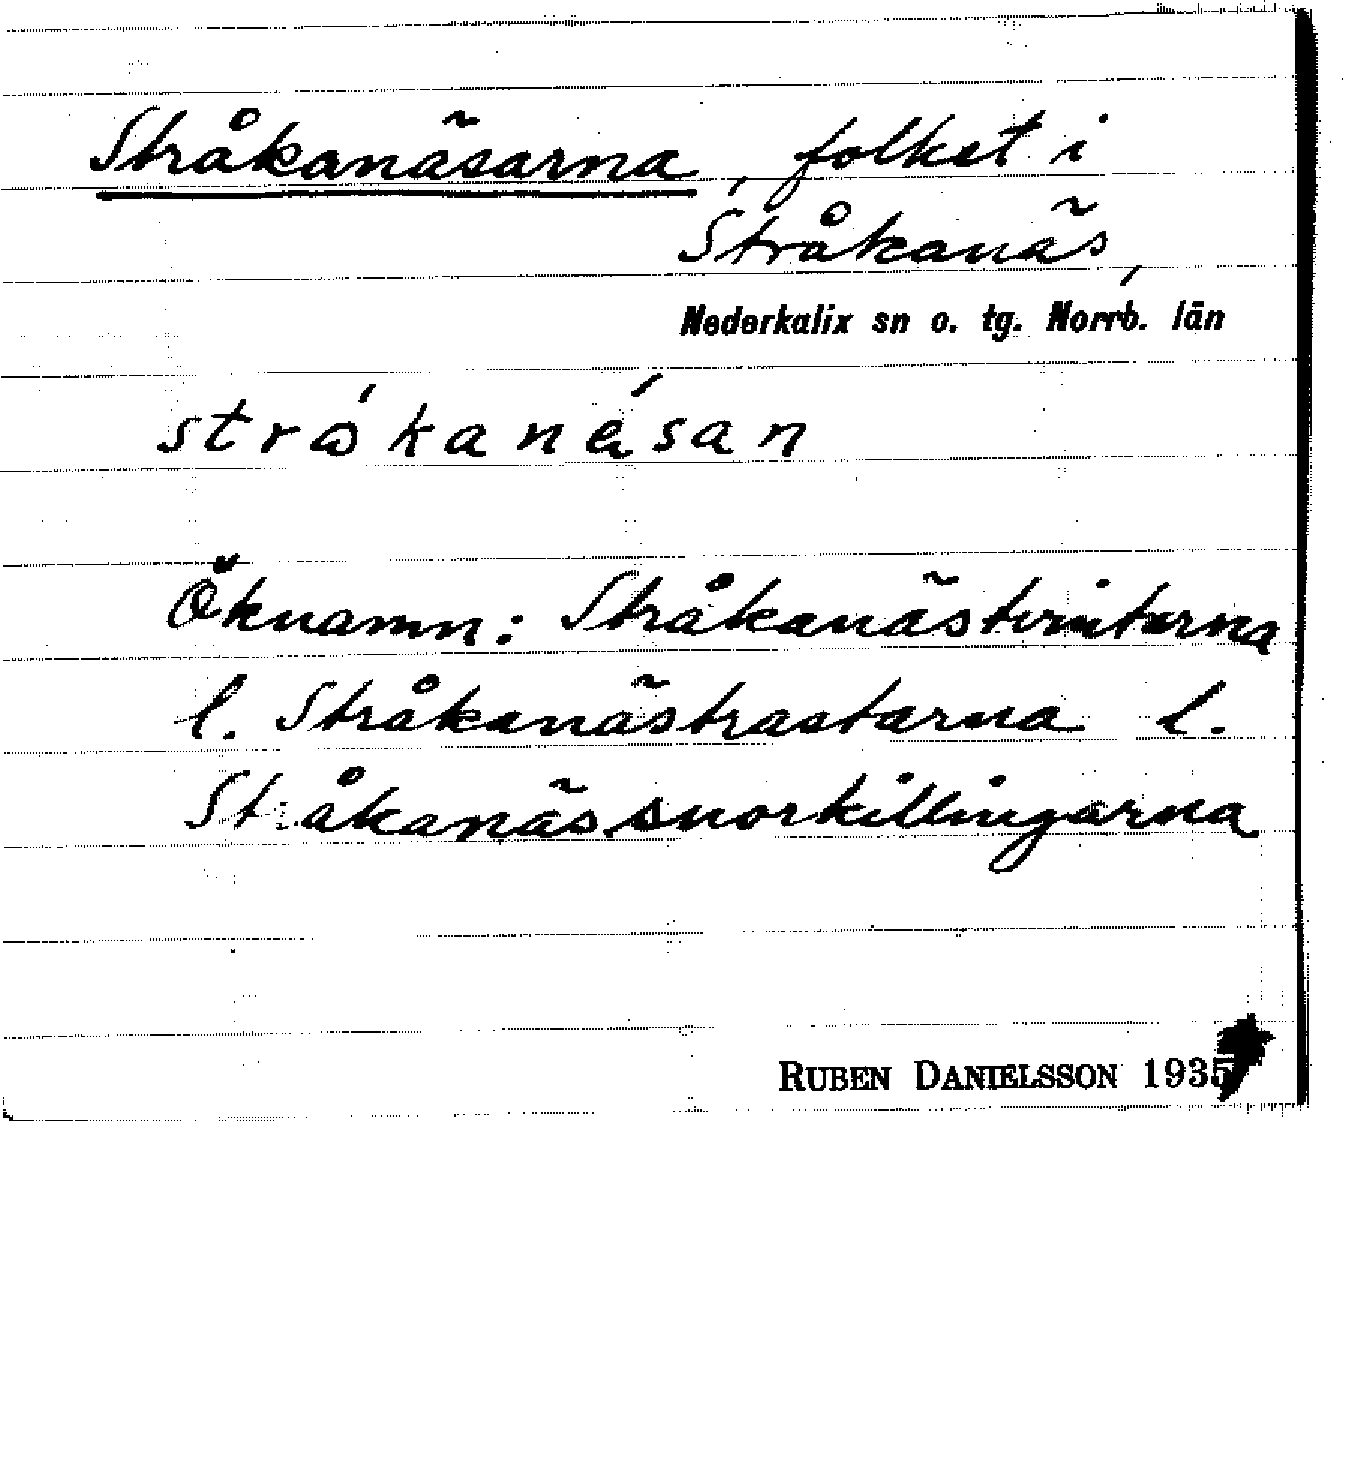 Stråkanäsarna, folket i
Stråkanäs,
Nederkalix sn o. tg. Norrb. län
Öknamn: Stråkanästvintarna
l. Stråkanästrastarna l.
Stråkanässnorkillingarna
RUBEN DANIELSSON 1935